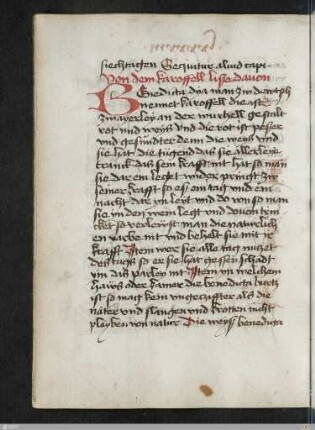 siechtagen Sequitur aliud capi.
Von dem karoffell lise davon
Benedicta dya man zu deutsch
nennet karoffell die ist
zwayerley an der wurtzell gestalt
rot und weyß und die rot ist pesser
und gesünnter denn die weyß und
sie hat die tugend das sie allerlay
tranck das sein krafft nit hat so man
sie dar ein leget wider pringt zu
seiner krafft so es ein tag und ein
nacht dar yn leyt und do von so man
sie yn den wein legt und davon trin
cket so verleust man die naturlich
en varbe nit und behelt sie mit ir
krafft Item wer sie alle tag nützet
des tags so er sie hat gessen schadt
im das nit Item yn welchem
haws oder kamer die benedicta wurtz
ist so mag kein ungeziffer als die
nater und slangen und krotten nicht
pleyben von natur Die weyß benedicta